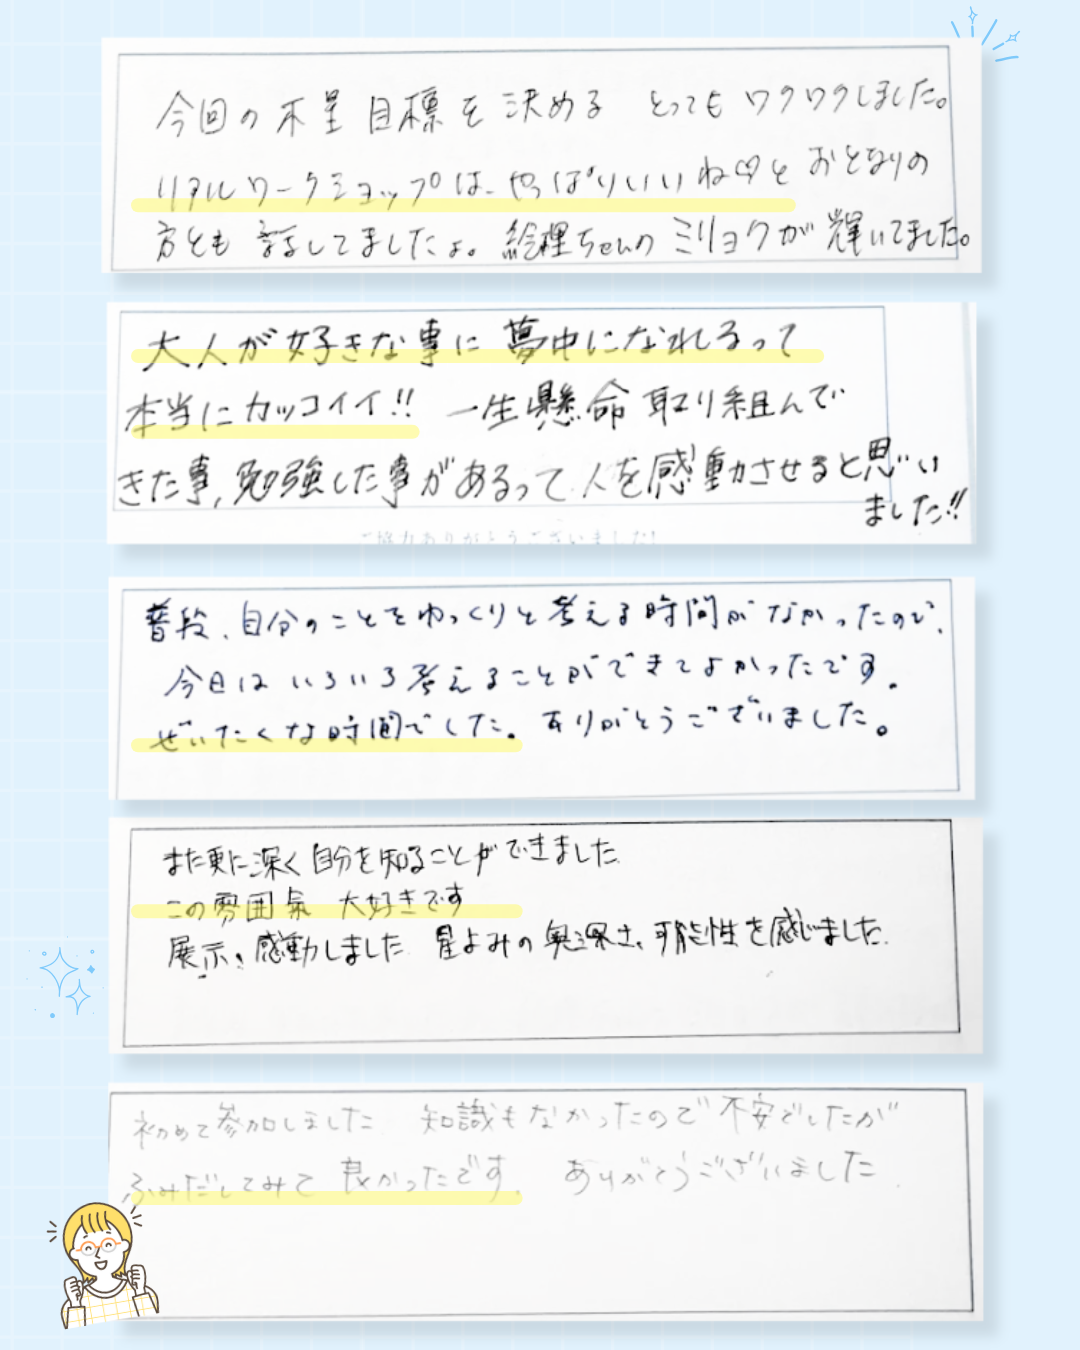 今回の木星目標を決める とってもワクワクしました。
リアルワークショップは、やっぱりいいね♡と おとなりの
方とも話してましたよ。絵理ちゃんのミリョクが輝いてました。
大人が好きな事に夢中になれるって
本当にカッコイイ!! 一生懸命取り組んで
きた事、勉強した事があるって人を感動させると思い
ました!!
ご協力ありがとうございました!
普段、自分のことをゆっくりと考える時間がなかったので、
今日はいろいろ考えることができてよかったです。
ぜいたくな時間でした。ありがとうございました。
また更に深く自分を知ることができました
この雰囲気 大好きです
展示、感動しました 星よみの奥深さ、可能性を感じました。
初めて参加しました 知識もなかったので不安でしたが
ふみだしてみて良かったです。 ありがとうございました.